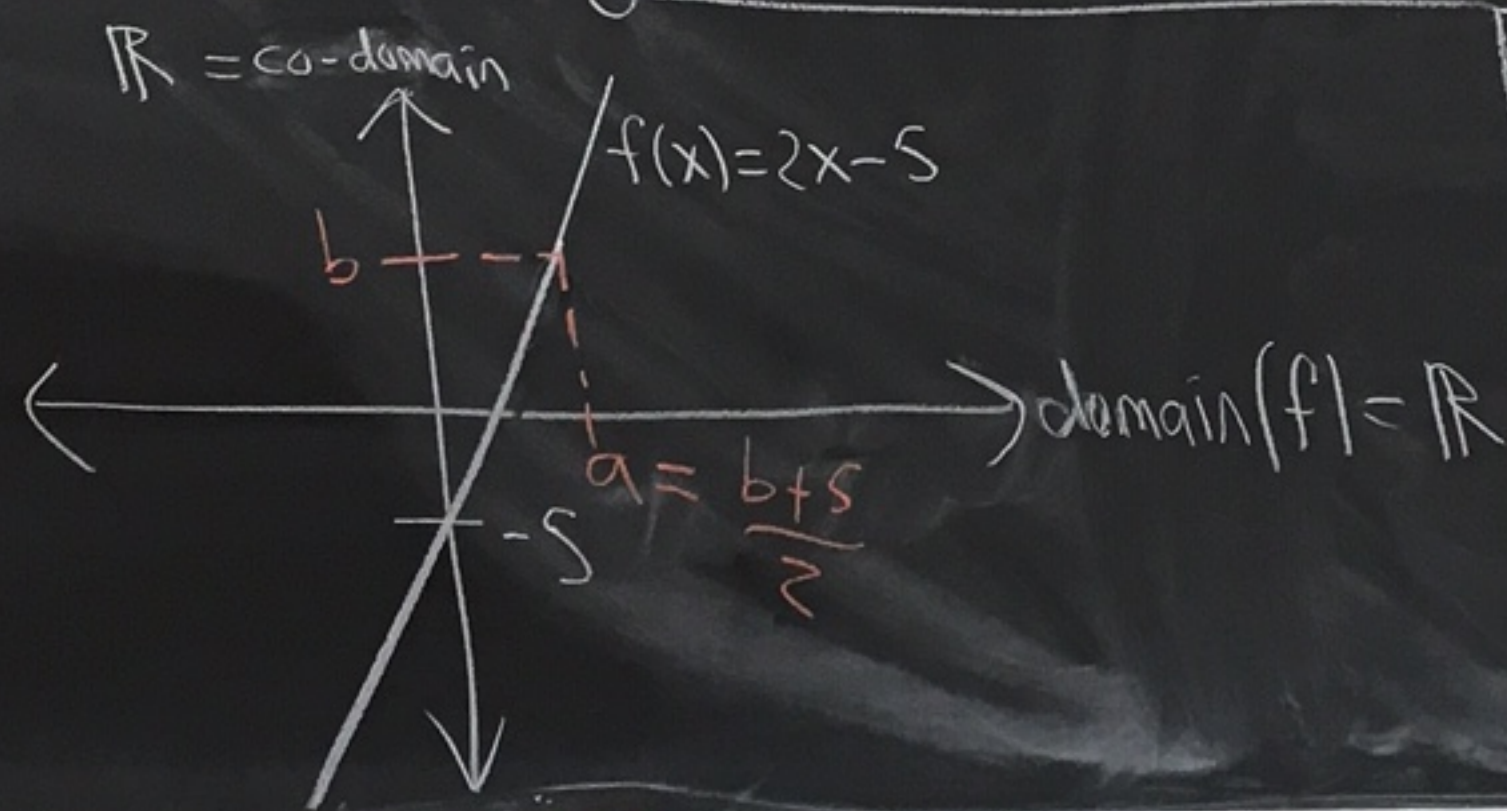 ℝ = co-domain
f(x)=2x-5
b
domain(f) = ℝ
a = b+5
2
-5